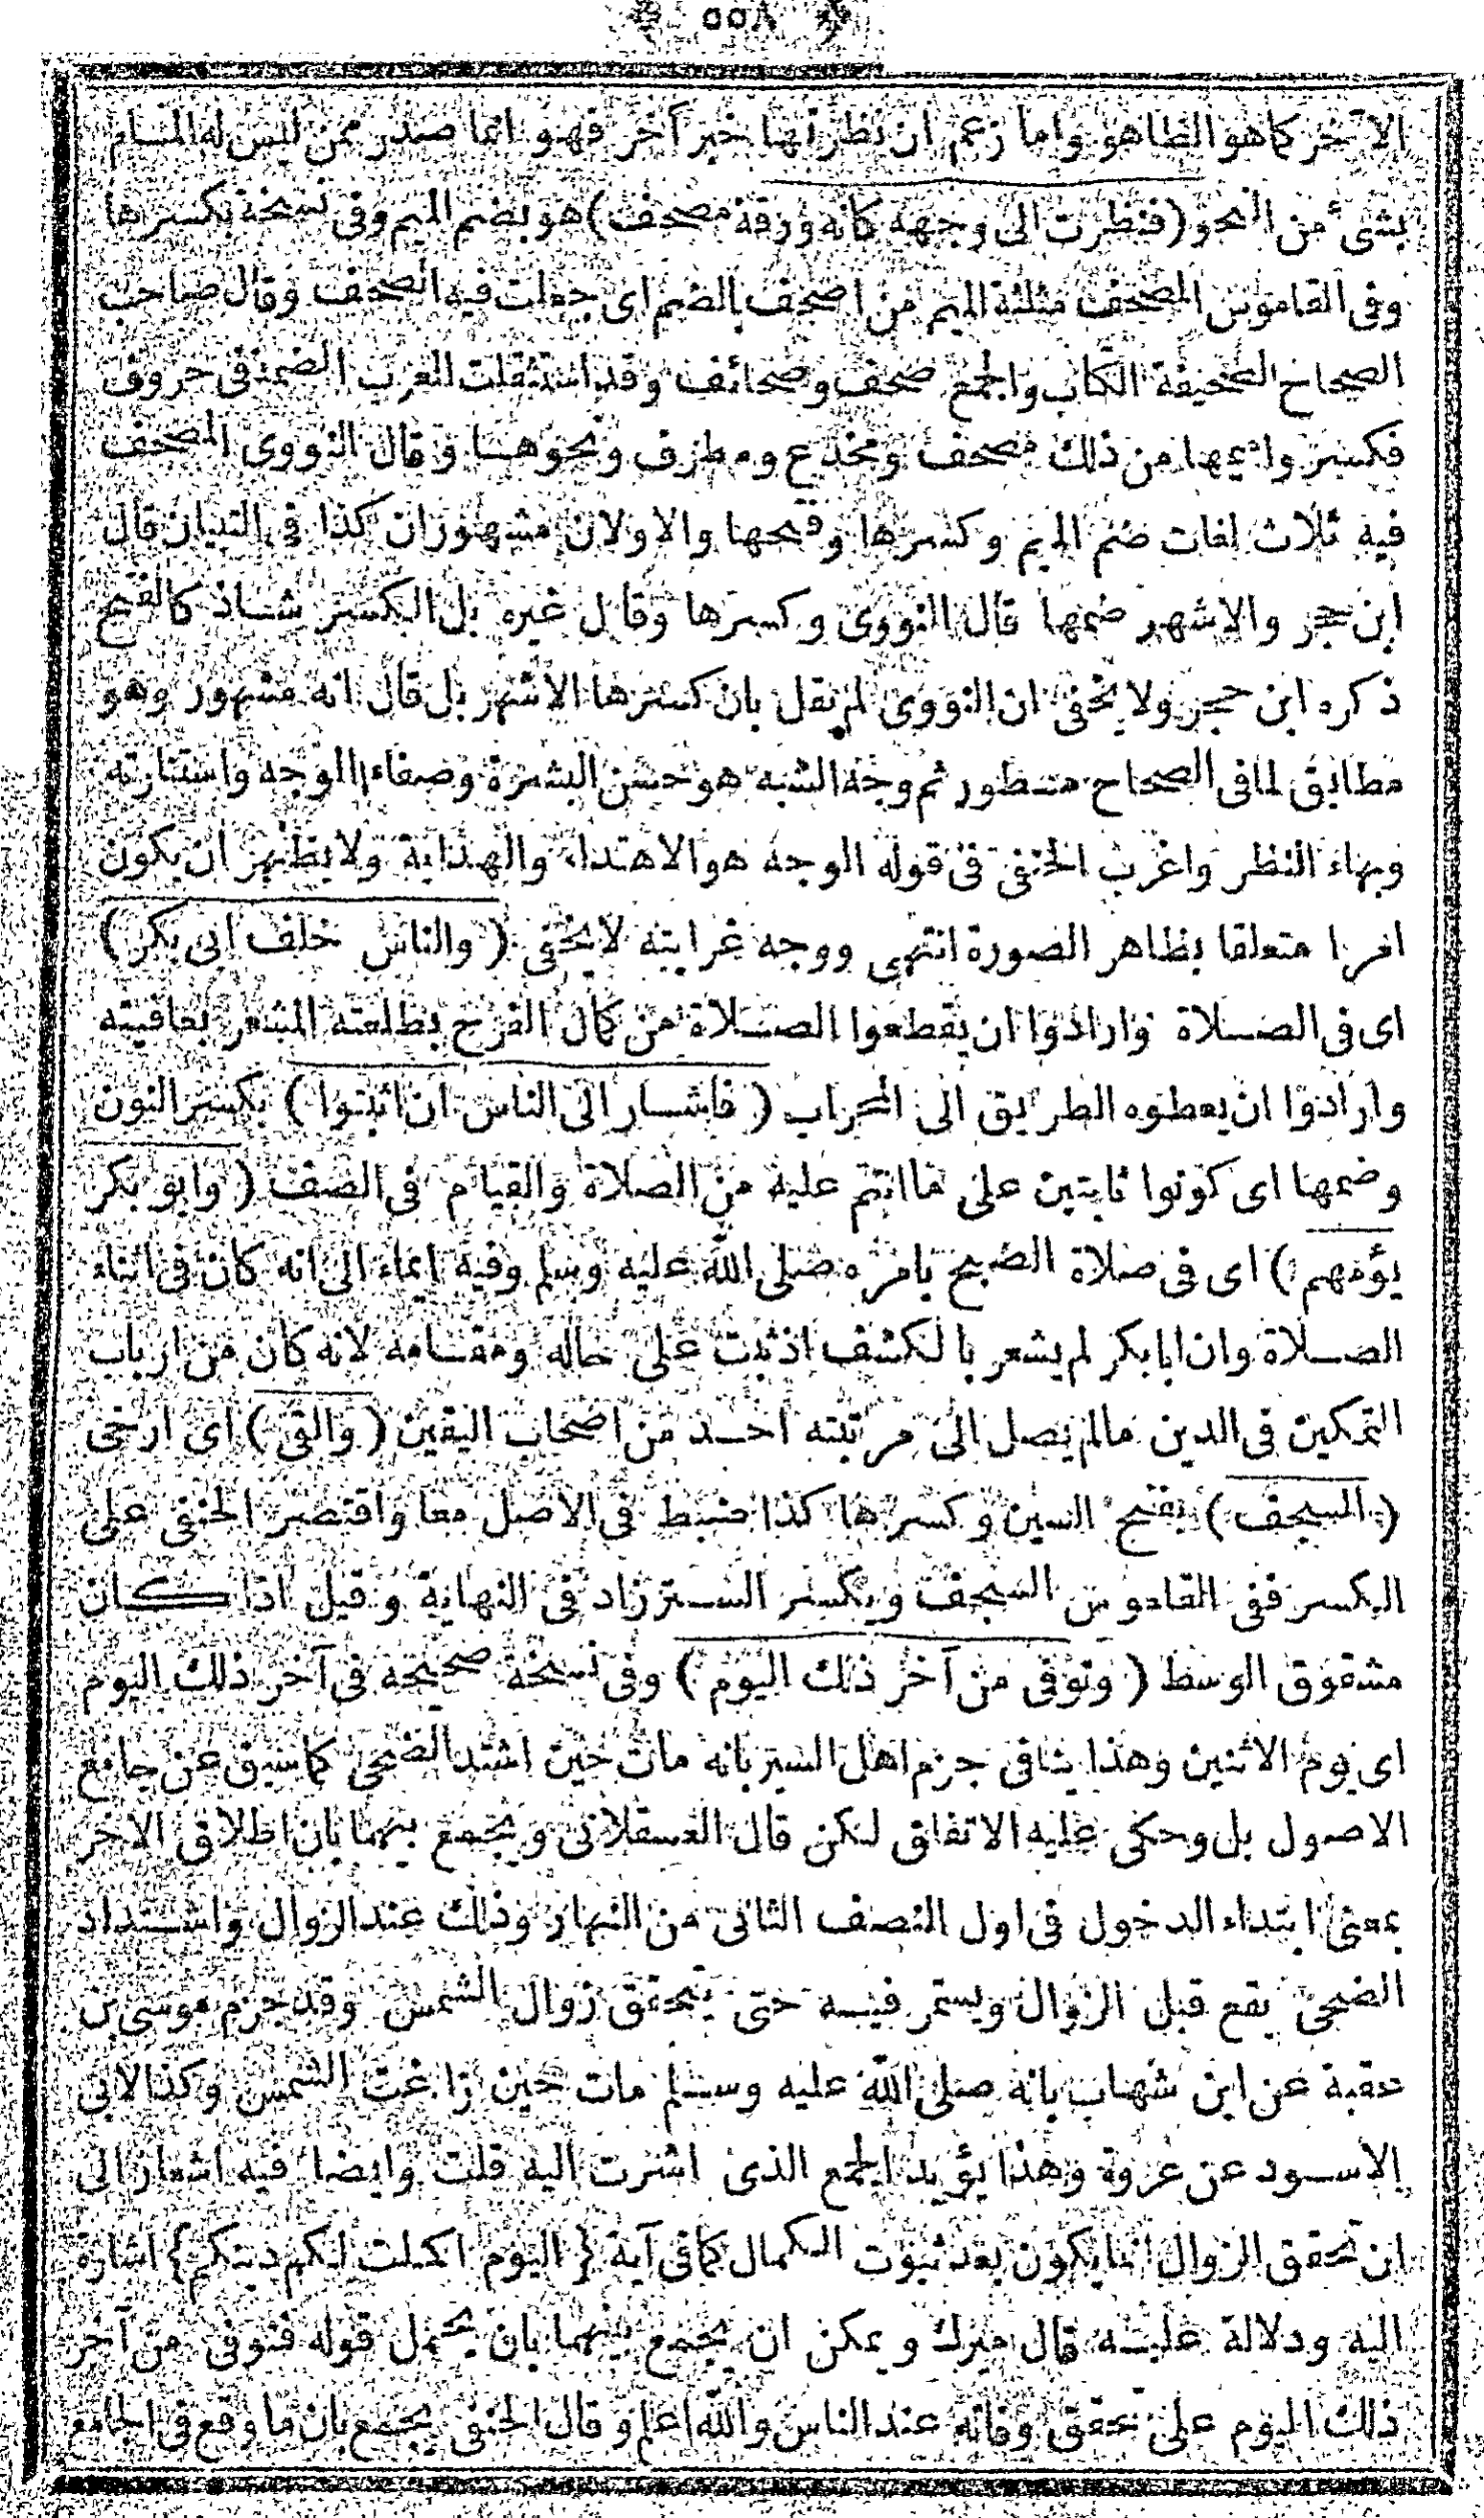 ﴿ ٥٥٨ ﴾
الآخر كما هو الظاهر واما زعم ان نظرتها خبر آخر فهو انما صدر ممن ليس له المام
بشئ من النحو (فنظرت الى وجهه كانه ورقة مصحف) هو بضم الميم وفى نسخة بكسرها
وفى القاموس المصحف مثلثة الميم من اصحف بالضم اى جعلت فيه الصحف وقال صاحب
الصحاح الصحيفة الكتاب والجمع صحف وصحائف وقد استثقلت العرب الضمة فى حروف
فكسروا ميمها من ذلك مصحف ومخدع ومطرف ونحوها وقال النووى المصحف
فيه ثلاث لغات ضم الميم وكسرها وفتحها والاولان مشهوران كذا فى التبيان قال
ابن حجر والاشهر ضمها قال النووى وكسرها وقال غيره بل الكسر شاذ كالفتح
ذكره ابن حجر ولا يخفى ان النووى لم يقل بان كسرها الاشهر بل قال انه مشهور وهو
مطابق لما فى الصحاح مسطور ثم وجه الشبه هو حسن البشرة وصفاء الوجه واستنارته
وبهاء النظر واغرب الحنفى فى قوله الوجه هو الاهتداء والهداية ولا يظهر ان يكون
امرا متعلقا بظاهر الصورة انتهى ووجه غرابته لا يخفى (والناس خلف ابى بكر)
اى فى الصلاة وارادوا ان يقطعوا الصلاة من كمال الفرح بطلعته المشعر بعافيته
وارادوا ان يعطوه الطريق الى المحراب (فاشار الى الناس ان اثبتوا) بكسر النون
وضمها اى كونوا ثابتين على ما انتم عليه من الصلاة والقيام فى الصف (وابو بكر
يؤمهم) اى فى صلاة الصبح بامره صلى الله عليه وسلم وفيه ايماء الى انه كان فى اثناء
الصلاة وان ابا بكر لم يشعر بالكشف اذ ثبت على حاله ومقامه لانه كان من ارباب
التمكين فى الدين مالم يصل الى مرتبته احد من اصحاب اليقين (والقى) اى ارخى
(السجف) بفتح السين وكسرها كذا ضبط فى الاصل معا واقتصر الحنفى على
الكسر ففى القاموس السجف ويكسر الستر زاد فى النهاية وقيل اذا كان
مشقوق الوسط (وتوفى من آخر ذلك اليوم) وفى نسخة صحيحة فى آخر ذلك اليوم
اى يوم الاثنين وهذا ينافى جزم اهل السير بانه مات حين اشتد الضحى كما سبق عن جامع
الاصول بل وحكى عليه الاتفاق لكن قال العسقلانى ويجمع بينهما بان اطلاق الاخر
بمعنى ابتداء الدخول فى اول النصف الثانى من النهار وذلك عند الزوال واشتداد
الضحى يقع قبل الزوال ويستمر فيه حتى يتحقق زوال الشمس وقد جزم موسى بن
عقبة عن ابن شهاب بانه صلى الله عليه وسلم مات حين زاغت الشمس وكذا لابى
الاسود عن عروة وهذا يؤيد الجمع الذى اشرت اليه قلت وايضا فيه اشعار الى
ان تحقق الزوال انما يكون بعد ثبوت الكمال كما فى آية ﴿ اليوم اكملت لكم دينكم ﴾ اشارة
اليه ودلالة عليه قال ميرك ويمكن ان يجمع بينهما بان يحمل قوله فتوفى من آخر
ذلك اليوم على تحقق وفاته عند الناس والله اعلم وقال الحنفى يجمع بان ما وقع فى الجامع